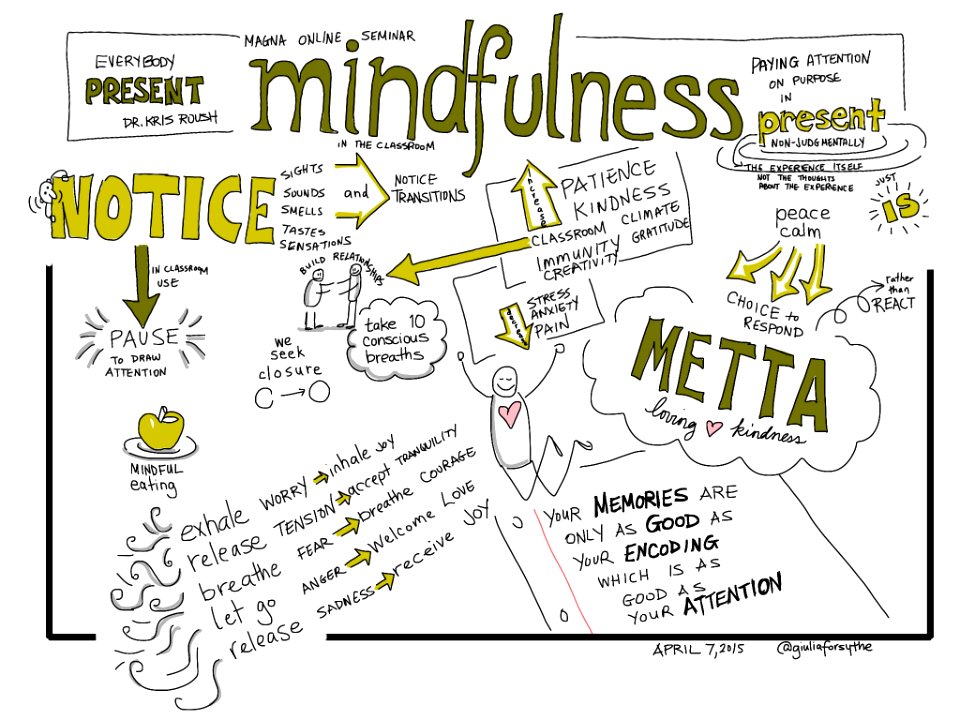 MAGNA ONLINE SEMINAR
EVERYBODY
PRESENT
DR. KRIS ROUSH
mindfulness
IN THE CLASSROOM
PAYING ATTENTION
ON PURPOSE
IN
present
NON-JUDGMENTALLY
THE EXPERIENCE ITSELF
NOT THE THOUGHTS
ABOUT THE EXPERIENCE
JUST
IS
NOTICE
SIGHTS
SOUNDS
SMELLS
TASTES
SENSATIONS
and
NOTICE
TRANSITIONS
IN CLASSROOM
USE
PAUSE
TO DRAW
ATTENTION
MINDFUL
eating
BUILD RELATIONSHIPS
we
seek
closure
take 10
conscious
breaths
increase
PATIENCE
KINDNESS
CLASSROOM CLIMATE
IMMUNITY GRATITUDE
CREATIVITY
decrease
STRESS
ANXIETY
PAIN
peace
calm
CHOICE to
RESPOND
rather
than
REACT
METTA
loving kindness
exhale WORRY inhale JOY
release TENSION accept TRANQUILITY
breathe FEAR breathe COURAGE
let go ANGER welcome LOVE
release SADNESS receive JOY
YOUR MEMORIES ARE
ONLY AS GOOD AS
YOUR ENCODING
WHICH IS AS
GOOD AS
YOUR ATTENTION
APRIL 7, 2015 @giuliaforsythe